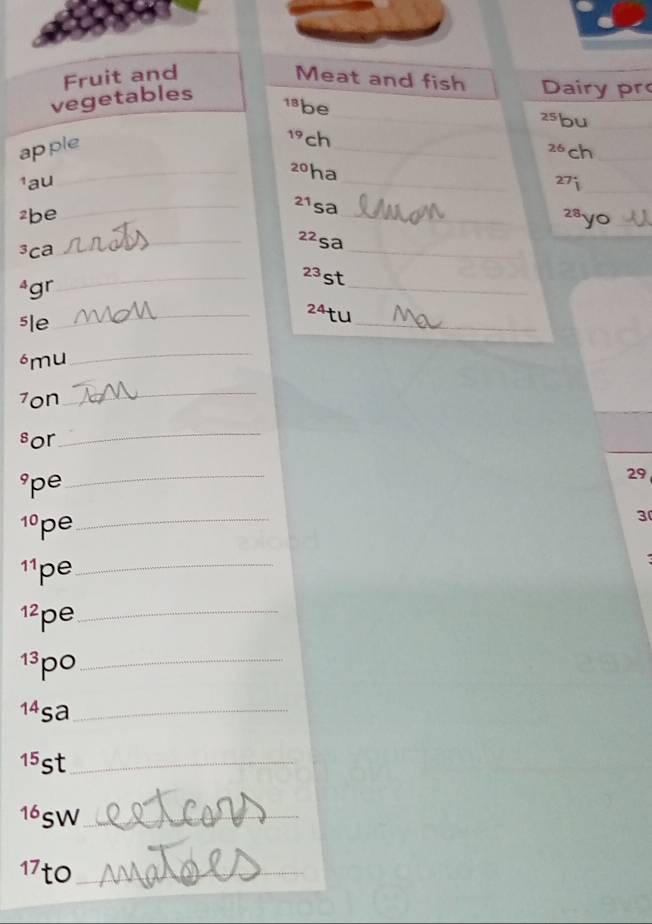 Fruit and
vegetables
apple
1au
2be
3ca rrots
4gr
5le mon
6mu
7on
8or
9pe
10pe
11pe
12pe
13po
14sa
15st
16sw eetcors
17to matoes
Meat and fish
18be
19ch
20ha
21sa lmon
22sa
23st
24tu Ma
Dairy pro
25bu
26ch
27i
28yo
29